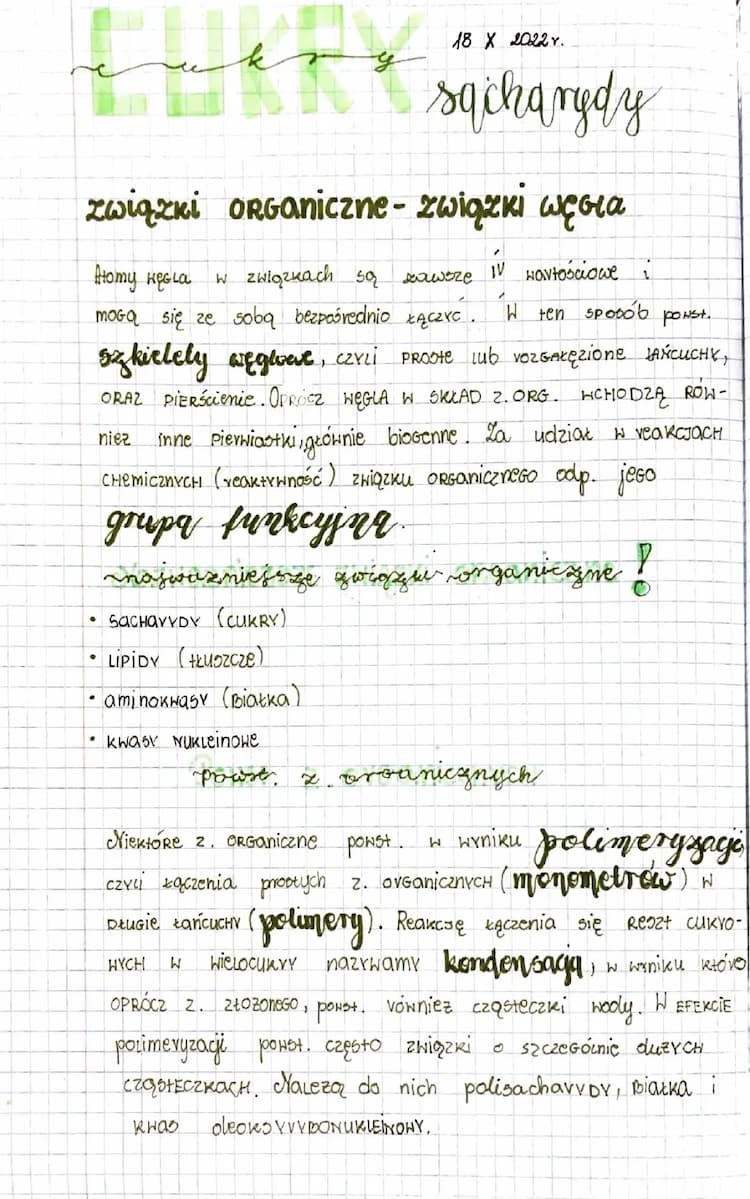 CUKRY
cukry
18 X 2022r.
sacharydy
związki organiczne - związki węgla
Atomy węgla w związkach są zawsze IV wartościowe i
mogą się ze sobą bezpośrednio łączyć. W ten sposób powst.
szkielety węglowe, czyli proste lub rozgałęzione łańcuchy,
oraz pierścienie. Oprócz węgla w skład z. org. wchodzą rów-
nież inne pierwiastki, głównie biogenne. Za udział w reakcjach
chemicznych (reaktywność) związku organicznego odp. jego
grupa funkcyjna.
najważniejsze związki organiczne!
• sacharydy (cukry)
• lipidy (tłuszcze)
• aminokwasy (białka)
• kwasy nukleinowe
powst. z. organicznych
Niektóre z. organiczne powst. w wyniku polimeryzacji,
czyli łączenia prostych z. organicznych (monometrów) w
długie łańcuchy (polimery). Reakcję łączenia się reszt cukro-
wych w wielocukry nazywamy kondensacją, w wyniku której
oprócz z. złożonego, powst. również cząsteczki wody. W efekcie
polimeryzacji powst. często związki o szczególnie dużych
cząsteczkach. Należą do nich polisacharydy, białka i
kwas